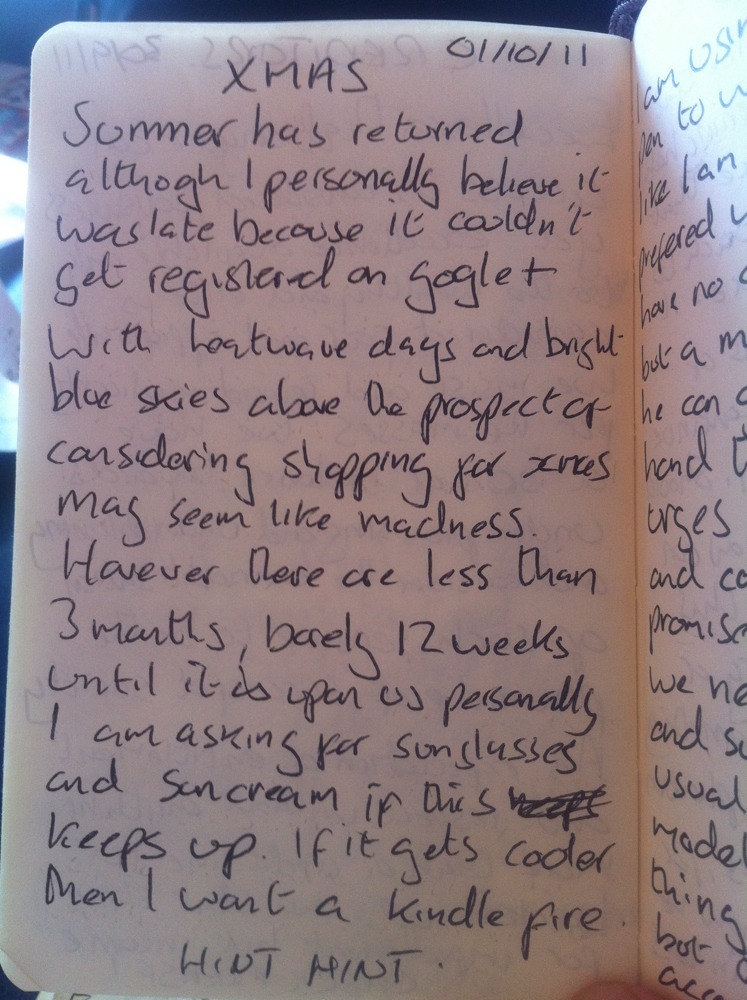 01/10/11
XMAS
Summer has returned
althogh I personally believe it
was late because it couldn't
get registered on google+
With heatwave days and bright
blue skies above the prospect of
considering shopping for xmas
may seem like madness.
However there are less than
3 months, barely 12 weeks
until it is upon us personally
I am asking for sunglasses
and suncream if this
keeps up. If it gets cooler
then I want a kindle fire.
HINT HINT.
I am usin
pen to w
like I am
prefered
have no
but a m
he can
hand
urges
and co
promisc
we ne
and su
usual
model
thing
but
acc